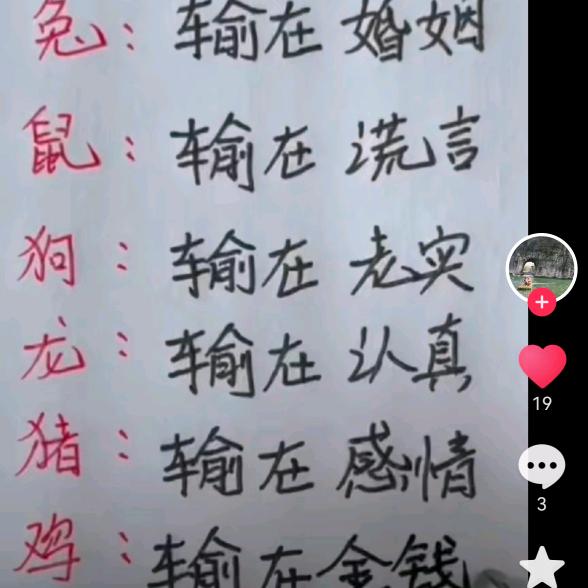 兔：输在 婚姻
鼠：输在 谎言
狗：输在 老实
龙：输在 认真
猪：输在 感情
鸡：输在 金钱
19
3